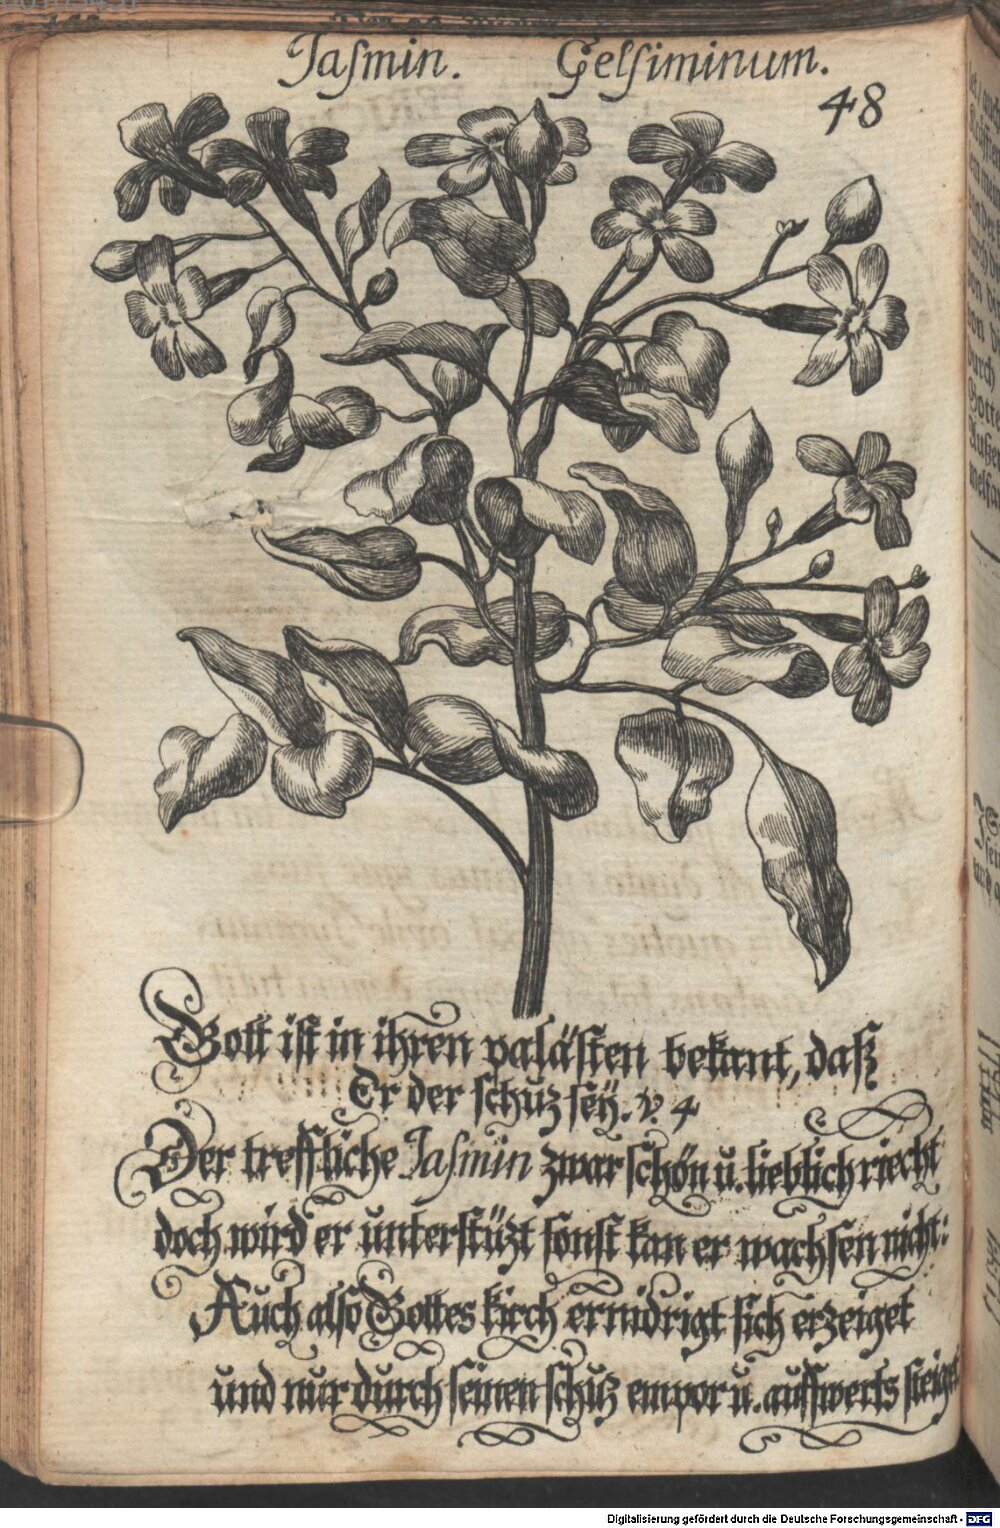 Jasmin. Gelsiminum.
48
Gott ist in ihren palästen bekant, daß
Er der schuz sey. v. 4
Der treffliche Jasmin zwar schön u. lieblich riecht
doch wird er unterstüzt sonst kan er wachsen nicht:
Auch also Gottes kirch ernidrigt sich erzeiget
und nur durch seinen schuz empor u. auffwerts steiget
Digitalisierung gefördert durch die Deutsche Forschungsgemeinschaft - DFG